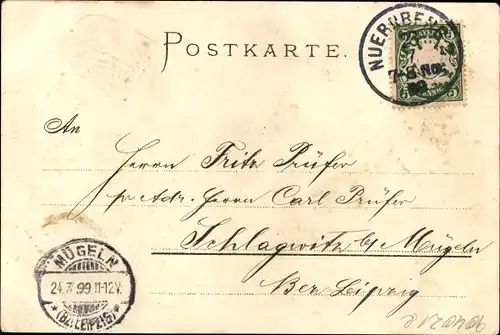 POSTKARTE.
NUERNBERG
7-8 Nm.
BAYERN
5 PFENNIG 5
An
Herrn Fritz Prüfer
pr Adr. Herrn Carl Prüfer
Schlagwitz b/ Mügeln
Bez. Leipzig
MÜGELN
24.7.99.11-12V.
* (BZ. LEIPZIG) *